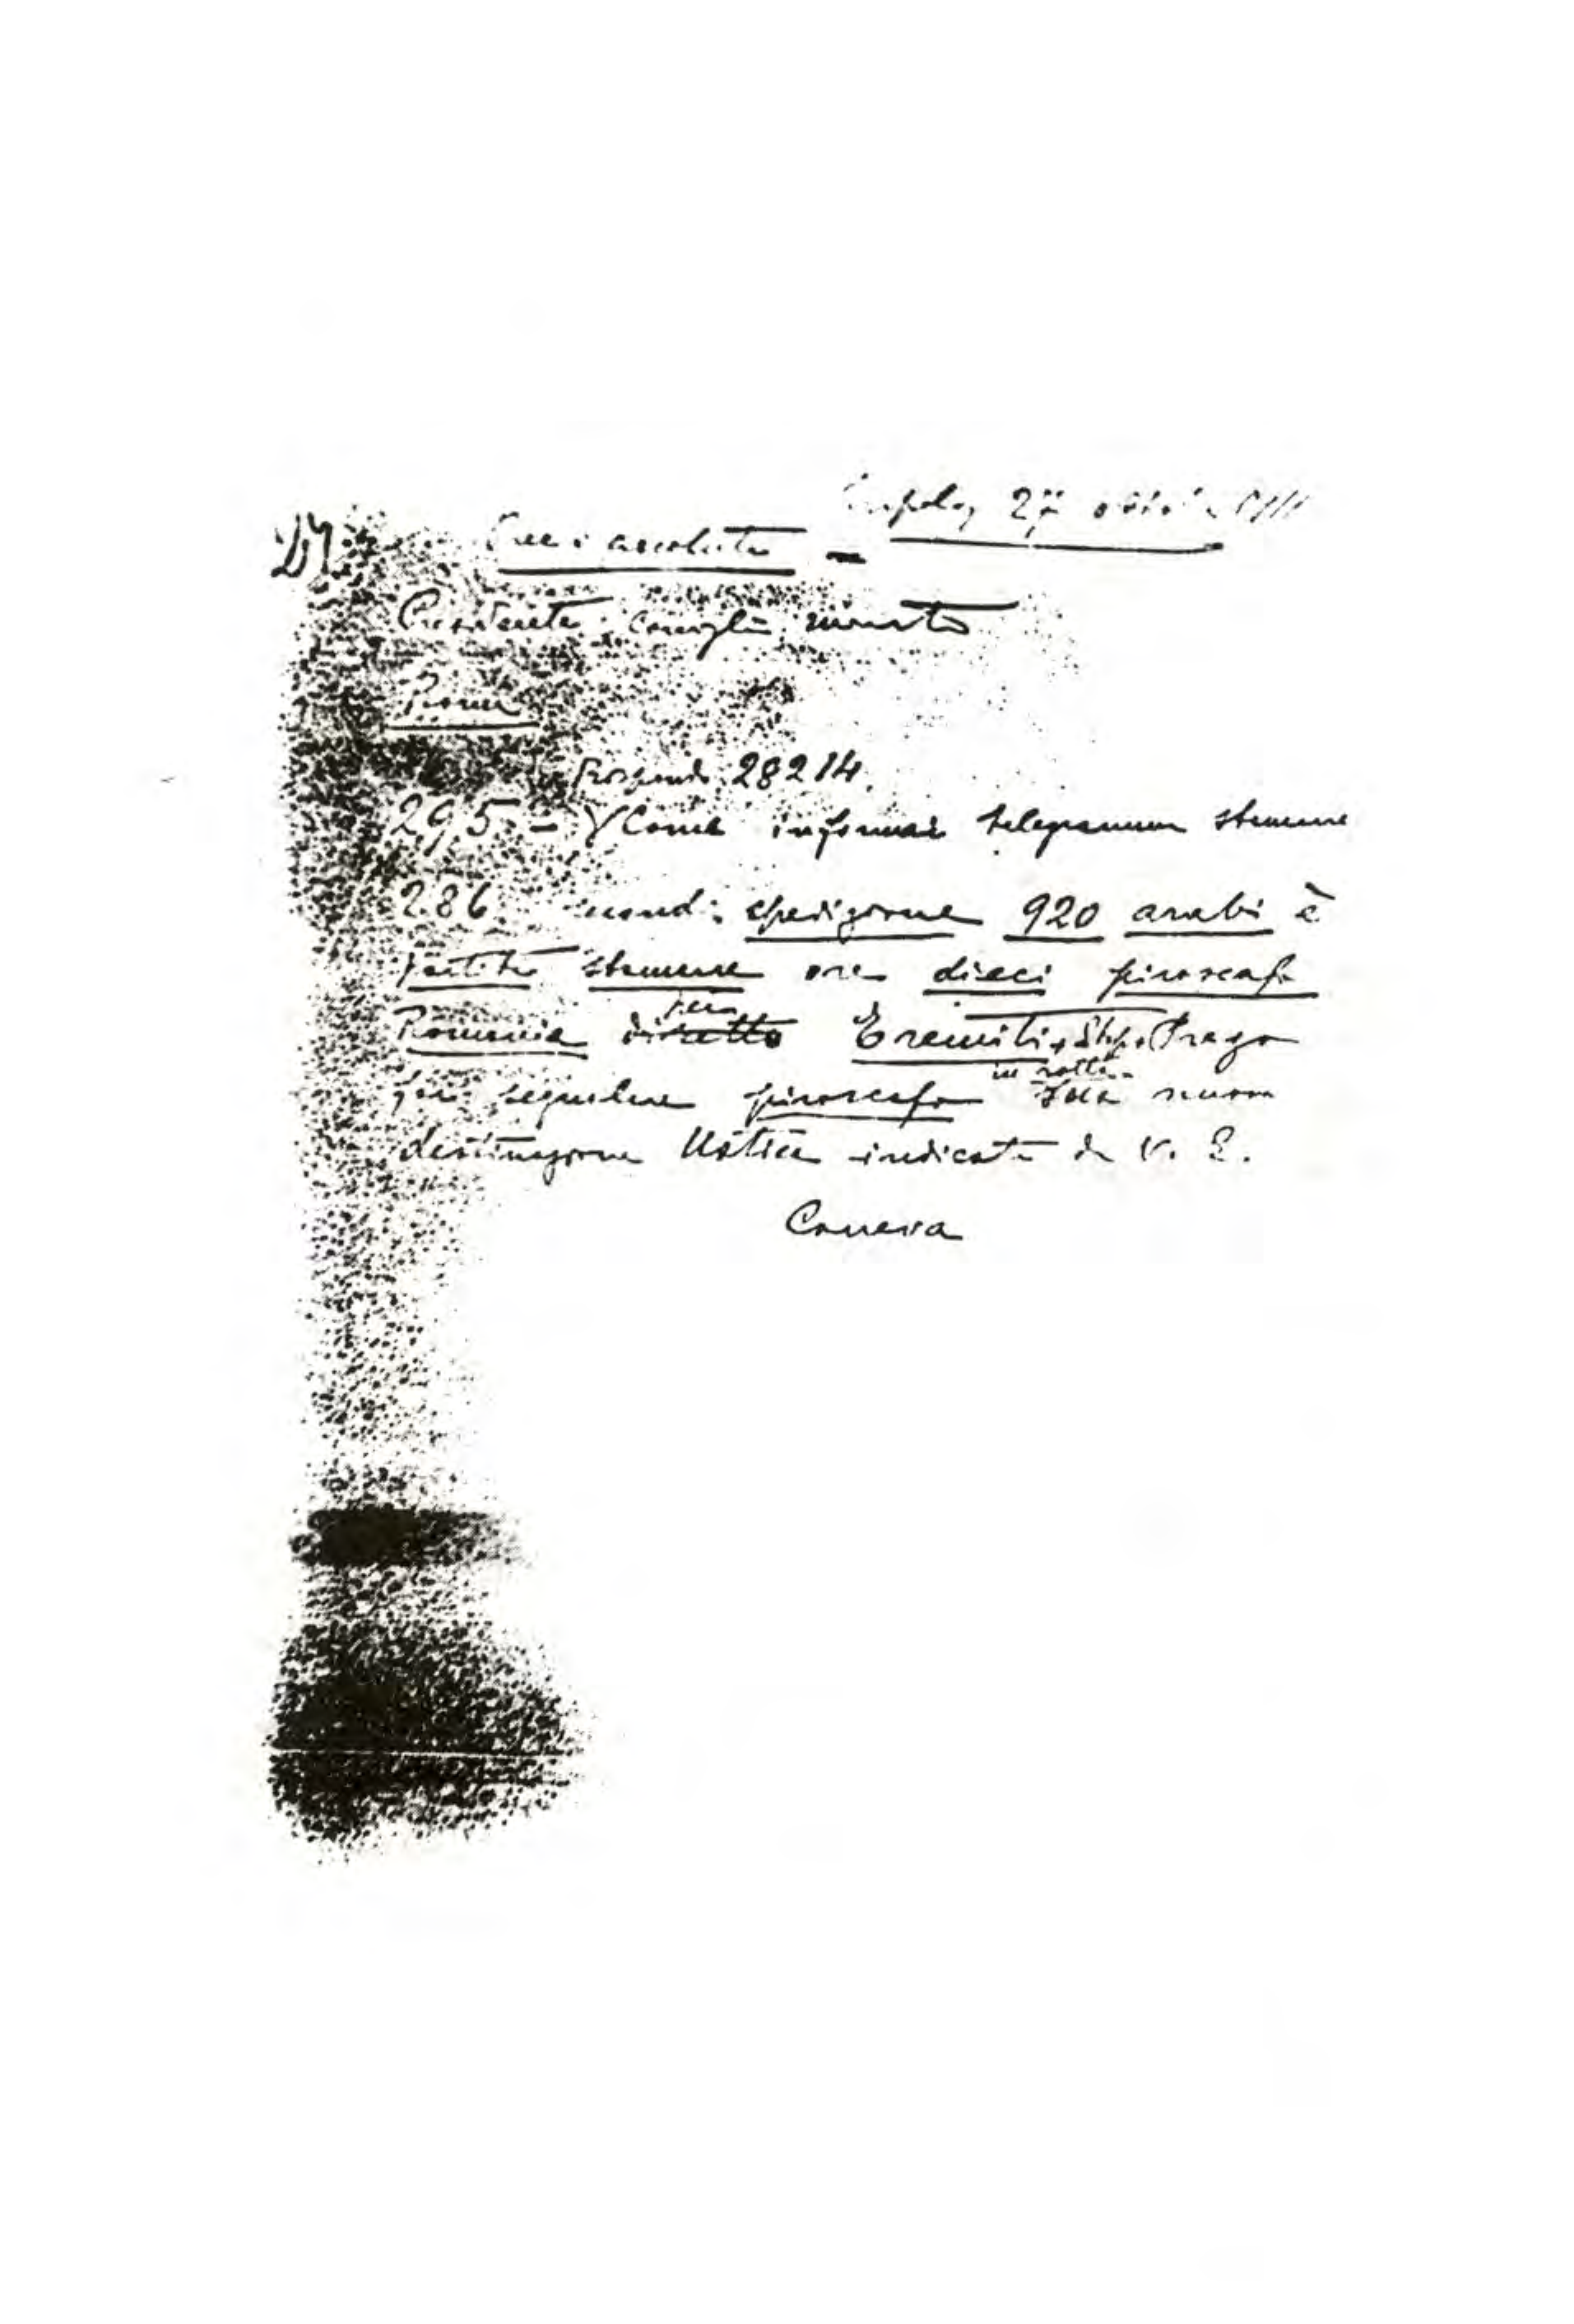 Tripoli, 27 ott.
Prec. assoluta —
Presidente Consiglio ministri
Roma
Rispondo 28214.
295 – Come informai telegramma stamane
286 second: spedizione 920 arabi è
partita stamane ore dieci piroscafo
Romania diretto per Tremiti. Stop. Prego
far segnalare piroscafo in rotta sua nuova
destinazione Ustica indicata da V. E.
Caneva